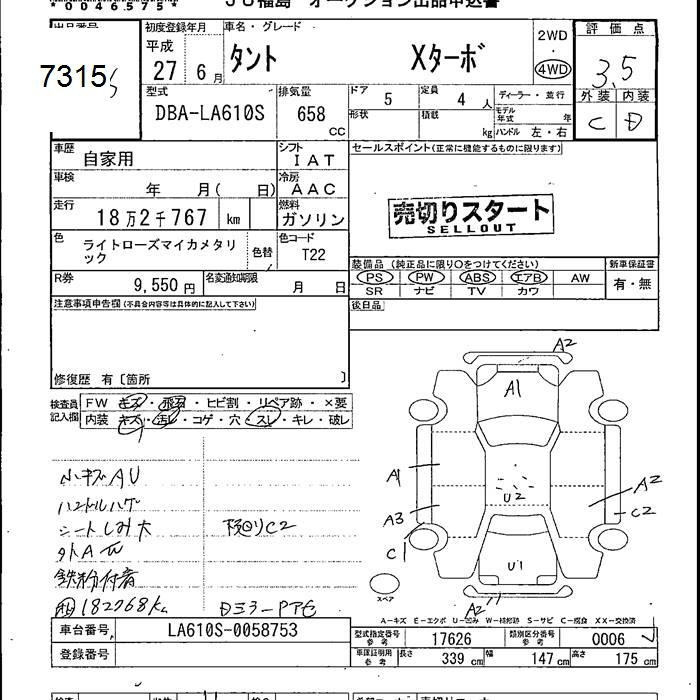 *00465754*
JU福島 オークション出品申込書
出品番号
7315
初度登録年月
平成
27 6月
車名・グレード
タント Xターボ
2WD
4WD
評価点
3.5
外装 内装
C D
型式
DBA-LA610S
排気量
658
cc
ドア 5
定員 4人
形状
積載 kg
ディーラー・並行
モデル年式 年
ハンドル 左・右
車歴
自家用
シフト
IAT
セールスポイント(正常に機能するものに限ります)
車検
年 月( 日)
冷房
AAC
走行
18万2千767 km
燃料
ガソリン
売切りスタート
SELLOUT
色
ライトローズマイカメタリック
色替
色コード
T22
装備品(純正品に限り○をつけてください)
PS PW ABS エアB AW
SR ナビ TV カワ
新車保証書
有・無
R券
9,550円
名変通知期限
月 日
後日品
注意事項申告欄(不具合内容等は具体的に記入して下さい)
修復歴 有〔箇所 〕
検査員記入欄
FW キズ・飛石・ヒビ割・リペア跡・×要
内装 キズ・汚レ・コゲ・穴・スレ・キレ・破レ
小キズAU
ハンドルハゲ
シートしみ大
下廻りC2
鉄粉付着
182768K
A2
A1
A1
U2
A2
A3
C2
C1
U1
A2
スペア
A-キズ E-エクボ U-凹み W-補修跡 S-サビ C-腐食 XX-交換済
車台番号
LA610S-0058753
登録番号
型式指定番号 参考
17626
類別区分番号 参考
0006
車庫証明用 参考
長さ 339cm
幅 147cm
高さ 175cm